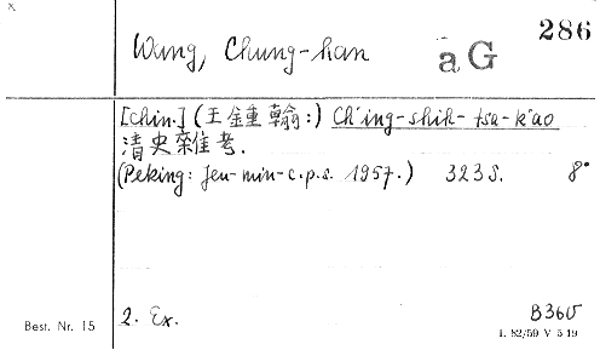 x
286
Wang, Chung-han
aG
[Chin.] (王鍾翰:) Ch'ing-shih-tsa-k'ao
清史雜考.
(Peking: Jen-min-c.p.s. 1957.) 323 S. 8°
2. Ex.
B360
Best. Nr. 15
1. 82/59 V 5 19